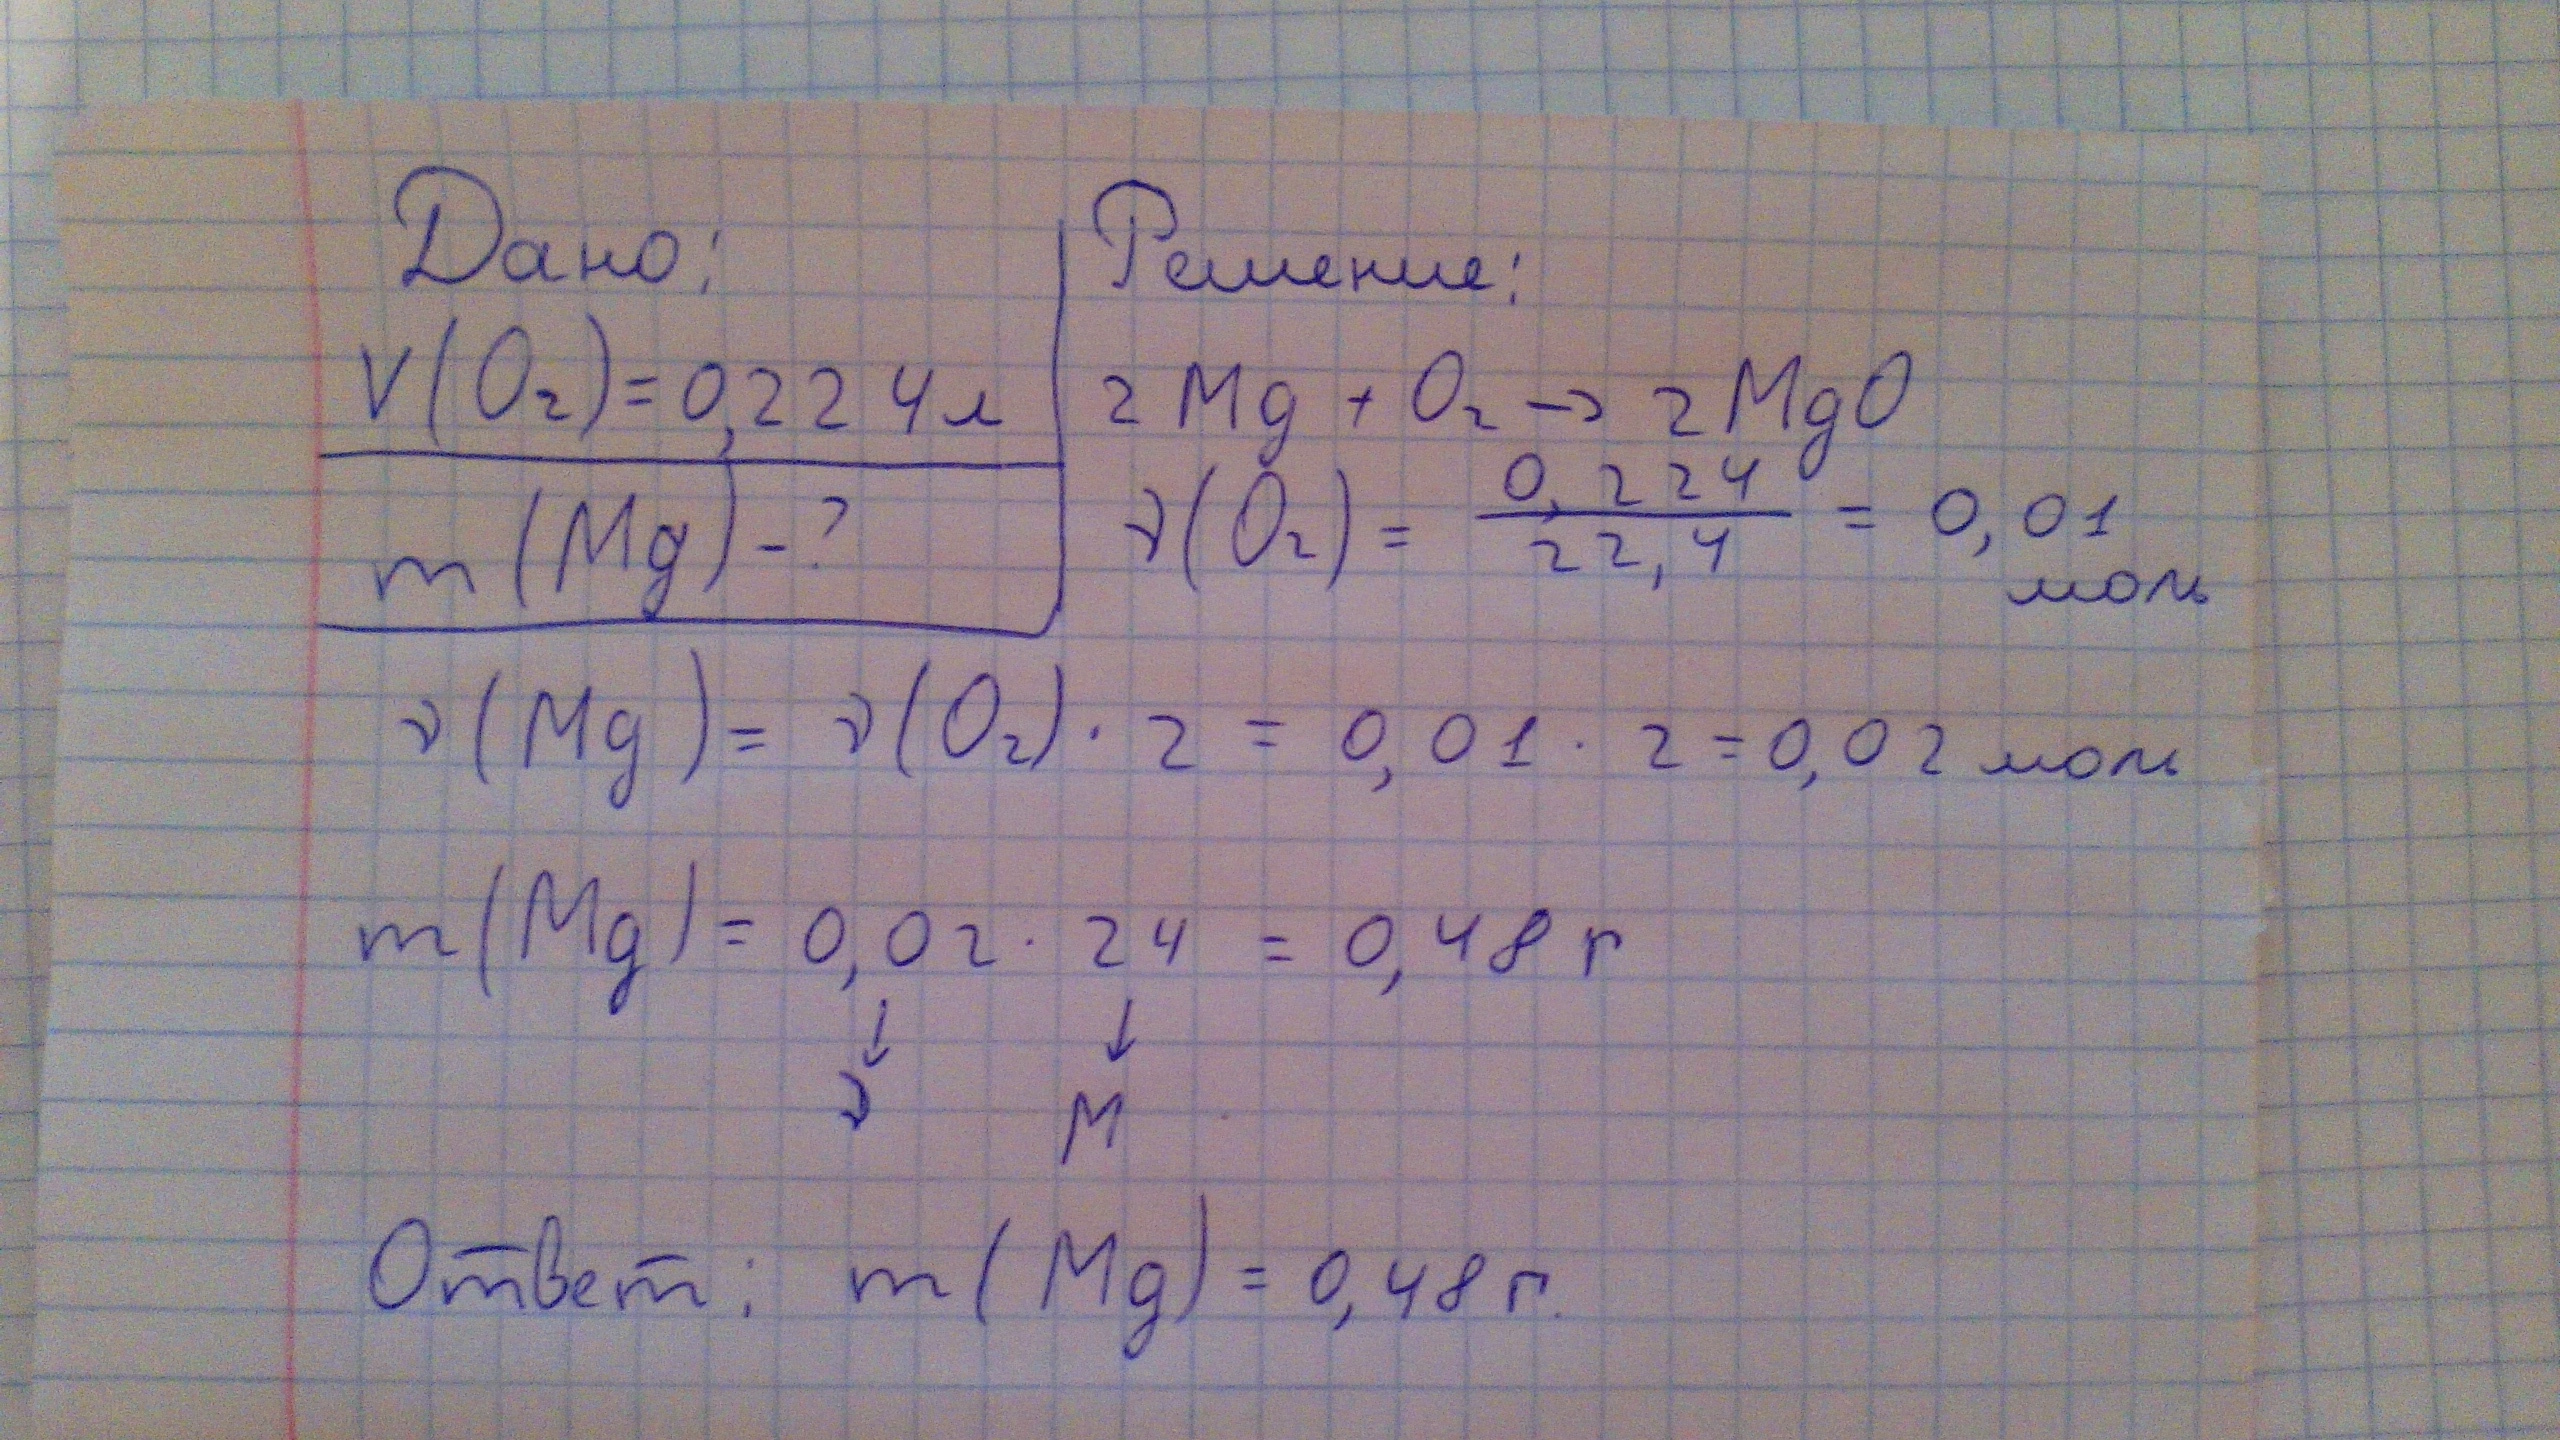 Дано:
V(O₂)=0,224л
m(Mg)-?
Решение:
2Mg + O₂ → 2MgO
ν(O₂) = 0,224 / 22,4 = 0,01
моль
ν(Mg) = ν(O₂) · 2 = 0,01 · 2 = 0,02 моль
m(Mg) = 0,02 · 24 = 0,48 г
↓ ↓
ν M
Ответ: m(Mg) = 0,48 г.